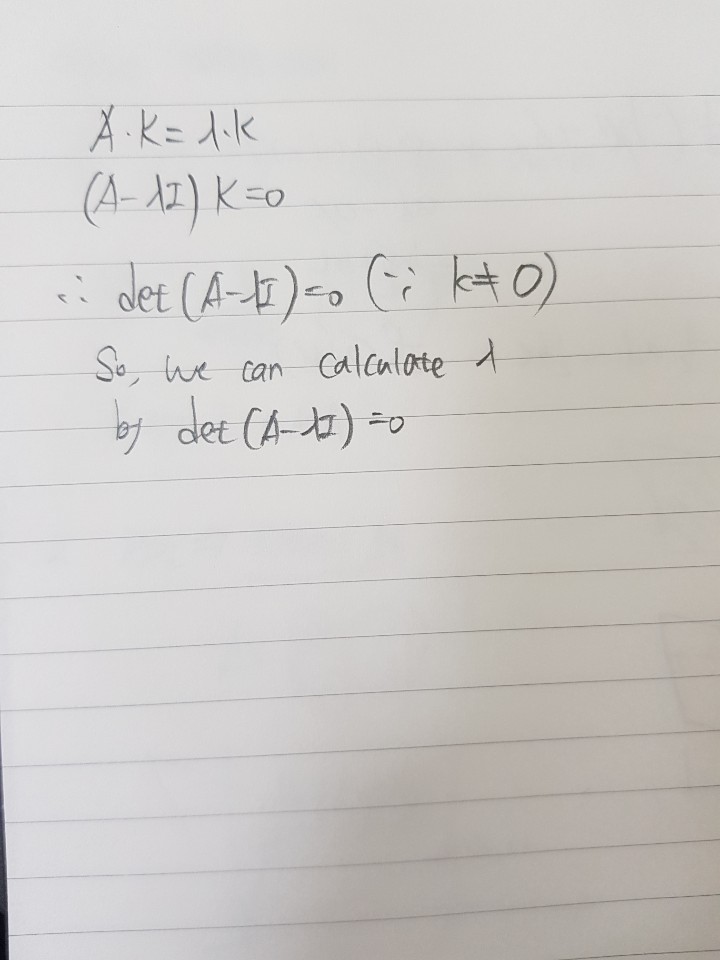 A·K=λ·K
(A-λI) K=0
∴ det(A-λI)=0 (∵ k≠0)
So, we can calculate λ
by det(A-λI)=0